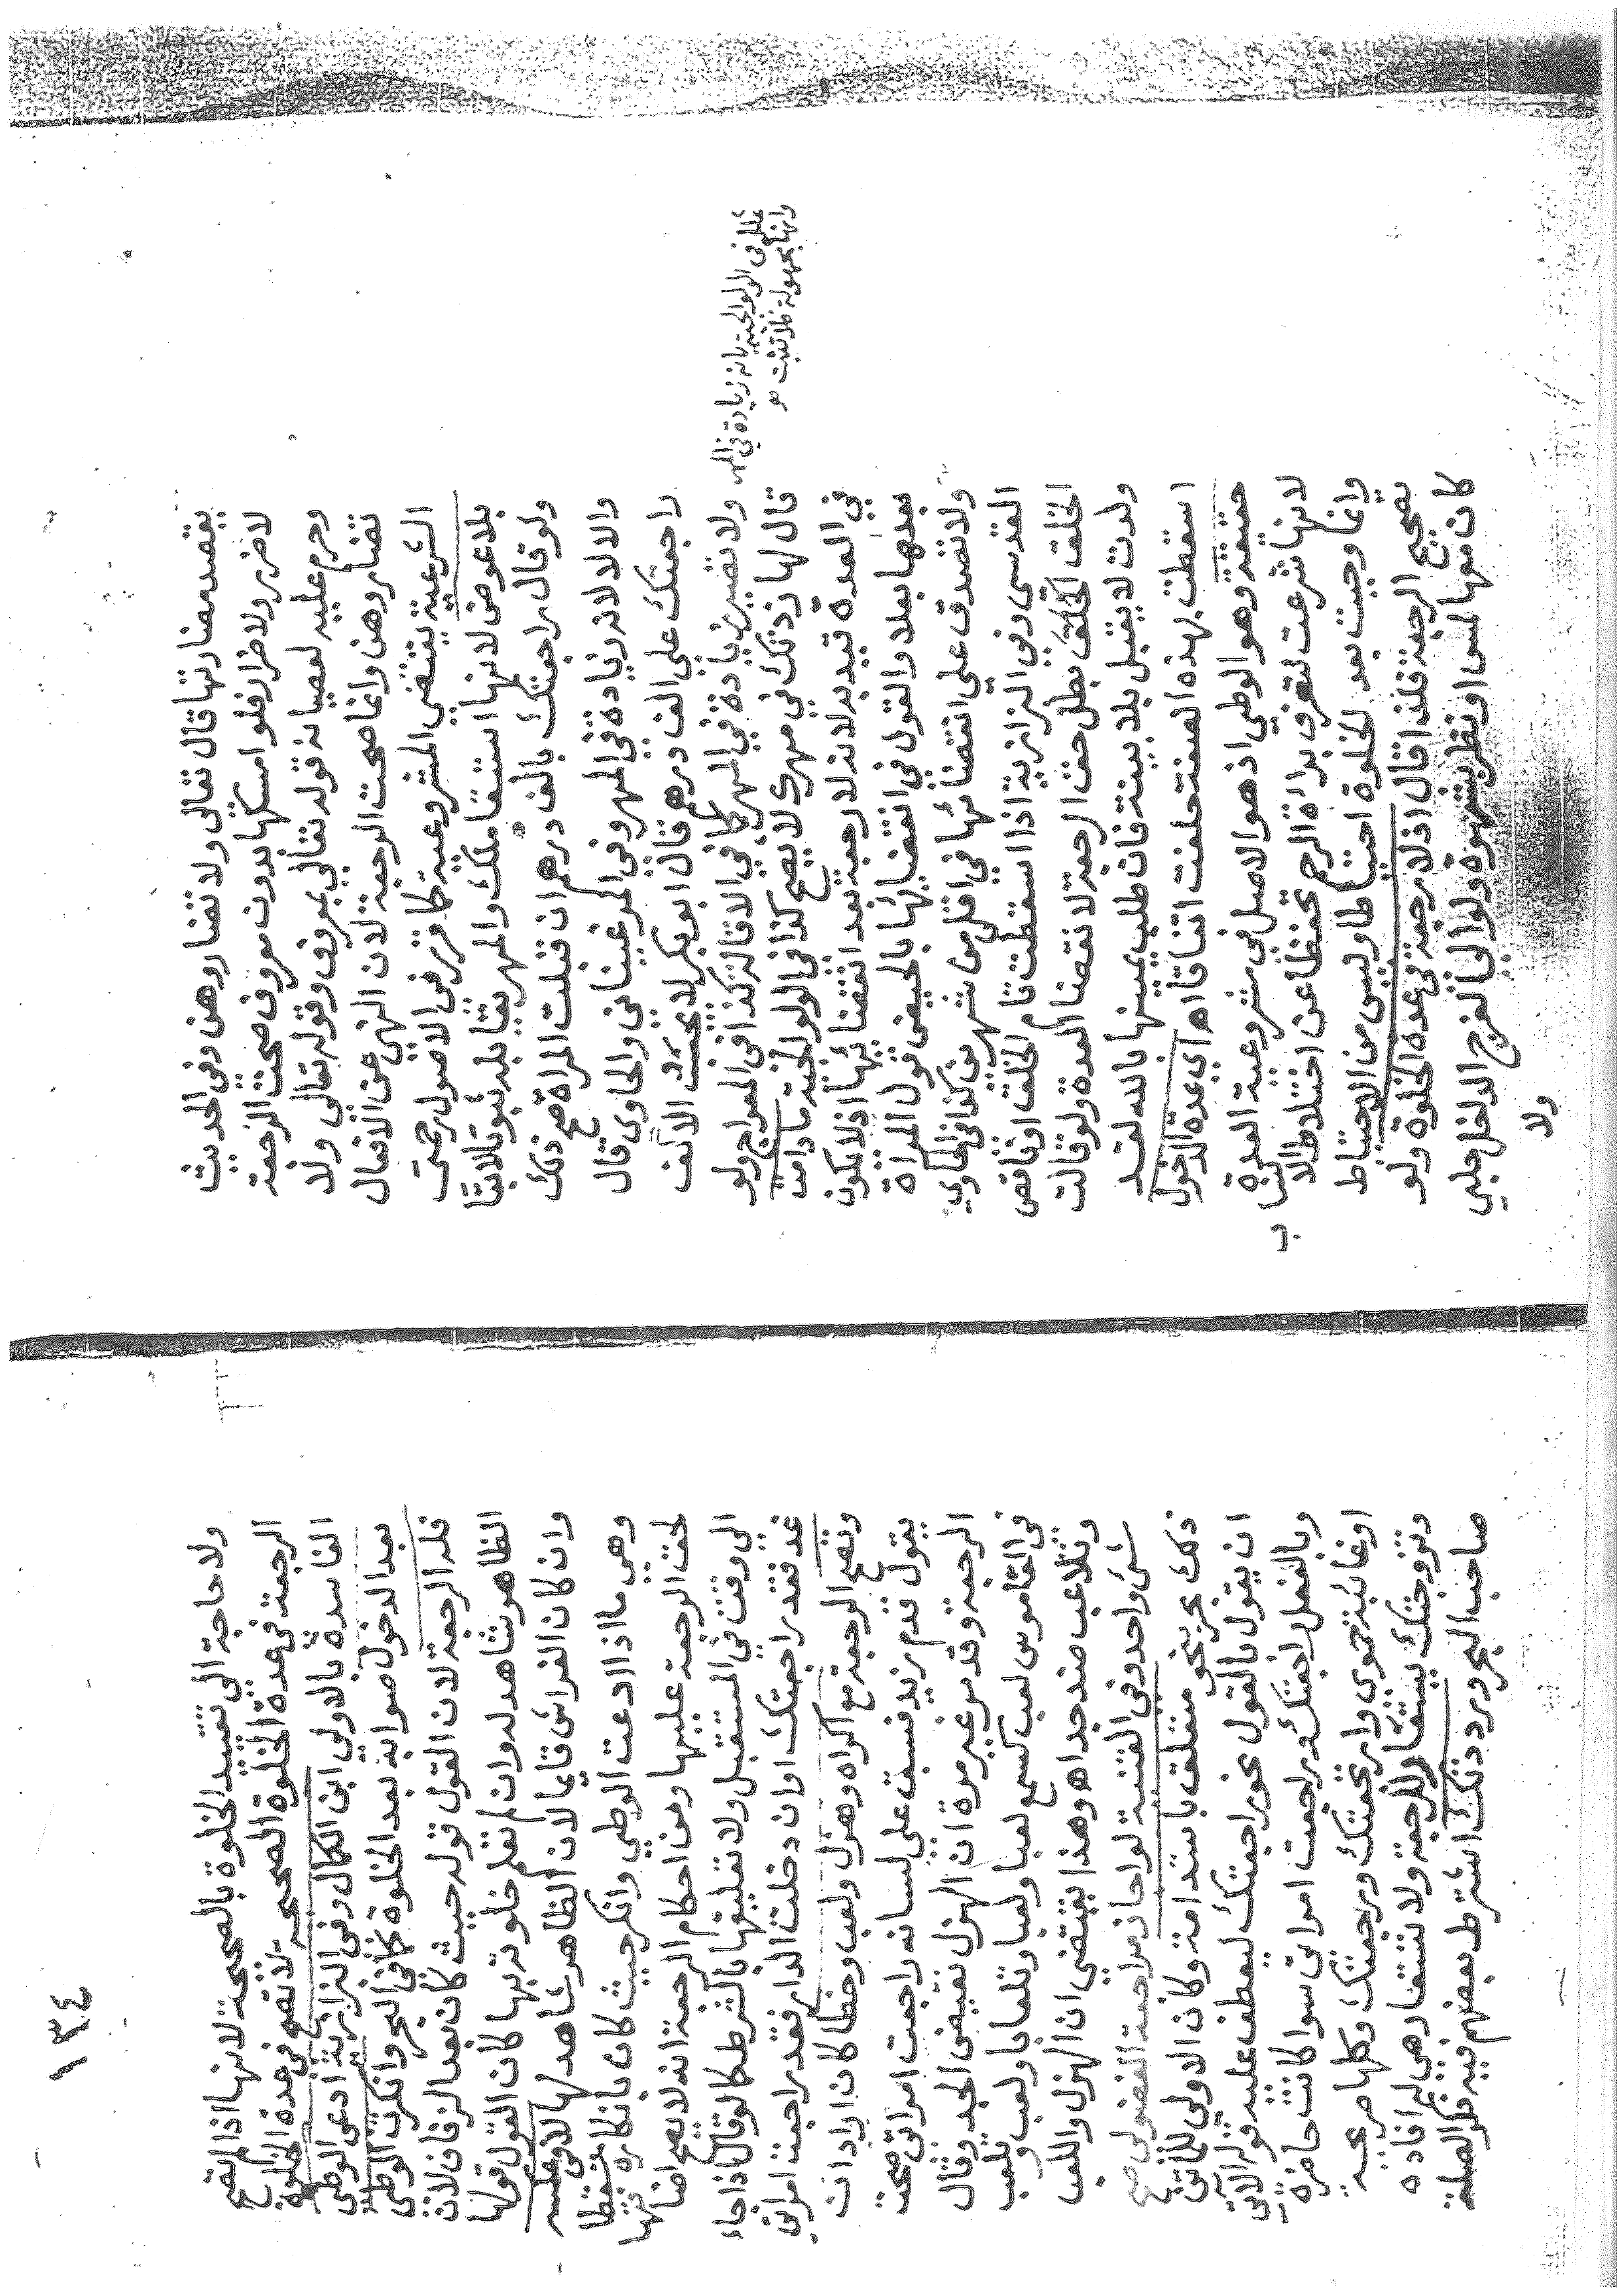 يقصد مضارتها قال تعالى ولا تضاروهن وفي الحديث
لا ضرر ولا ضرار فلو امسكها بدون معروف صحت الرجعة
وحرم عليه لعصيانه قوله تعالى بمعروف وقوله تعالى ولا
تضاروهن وانما صحت الرجعة لان النهي عن الافعال
الشرعية يقتضي المشروعية كما قرر في الاصول رحمتي
بلا عوض لانها استبقا ملك والمهر يقابله ثبوتا لا بقا
ولو قال راجعتك بالف درهم ان قبلت المراة صح ذلك
والا لا لانه زيادة في المهر وفي المرغيناني والحاوي قال
راجعتك على الف درهم قال ابو بكر لا يجب الالف
ولا تصير زيادة في المهر كما في الاقالة كذا في المعراج ولو
علله في الولوالجية بانه زيادة في المهر
وانها مجهولة فلا تثبت
قال لها زدتك في مهرك لا يصح كذا في الولوالجية ما دامت
في العدة قيد به لانه لا رجعة بعد انقضايها اذ لا يكون
بعدها بعلا والقول في انقضائها بالحيض قول المراة
ولا تصدق على انقضائها في اقل من شهرين كذا في الحاوي
القدسي وفي البزازية اذا اسقطت تام الخلق او ناقص
الخلق بطل حق الرجعة لانقضا العدة ولو قالت
ولدت لا يقبل بلا بينة فان طلب يمينها بالله لقد
اسقطت بهذه الصفة حلفت اتفاقا اه اي عدة الدخول
حقيقة وهو الوطي اذ هو الاصل في مشروعية العدة
لانها شرعت لتعرف براة الرحم تحفظا عن اختلاط الانساب
وانما وجبت بعد الخلوة احتياطا وليس من الاحتياط
تصحيح الرجعة فلذا قال اذ لا رجعة في عدة الخلوة ولو
كان معها لمس او نظر بشهوة ولو الى الفرج الداخل حلبي
ولا
١٣٤
ولا حاجة الى تقييد الخلوة بالصحيحة لانها اذا لم تصح
الرجعة في عدة الخلوة الصحيحة لا تصح في عدة الخلوة
الفاسدة بالاولى ابن الكمال وفي البزازية ادعى الوطي
بعد الدخول صوابه بعد الخلوة كما في البحر وانكرت الوطي
فله الرجعة لان القول قوله حيث كان بعد الزفاف لان
الظاهر شاهد له وان لم تعلم خلوته بها كان القول قولها
وان كان الفراش قايما لان الظاهر شاهد لها لا في عكسه
وهي ما اذا ادعت الوطي وانكر حيث كان بانكاره مسقطا
لحق الرجعة عليها ومن احكام الرجعة انه لا يصح اضافتها
الى وقت في المستقبل ولا تعليقها بالشرط كما لو قال اذا جاء
غد فقد راجعتك او ان دخلت الدار فقد راجعت امراتي
وتصح الرجعة مع اكراه وهزل ولعب وخطا كان اراد ان
يقول قدم زيد فسبق على لسانه راجعت امراتي صحت
الرجعة وقد مر غير مرة ان الهزل نقيض الجد وقال
في القاموس لعب كسمع لعبا ولعبا وتلعابا ولعب وتلعب
وتلاعب ضد جد اه وهذا يقتضي ان الهزل واللعب
شي واحد وفي القنية لو اجاز مراجعة الفضولي صح
ذلك بحر بنحو متعلق باستدامة وكان الاولى للماتن
ان يقول بالقول نحو راجعتك ليعطف عليه قوله الآتي
وبالفعل راجعتك وراجعت امراتي سوا كانت حاضرة
او غائبة حموي وارتجعتك ورجعتك وكلها صريحة
وتزوجتك بيتفا وللرجعة ولا تتفا وهي لها افاده
صاحب البحر ورددتك اشترط بعضهم فيه ذكر الصلة